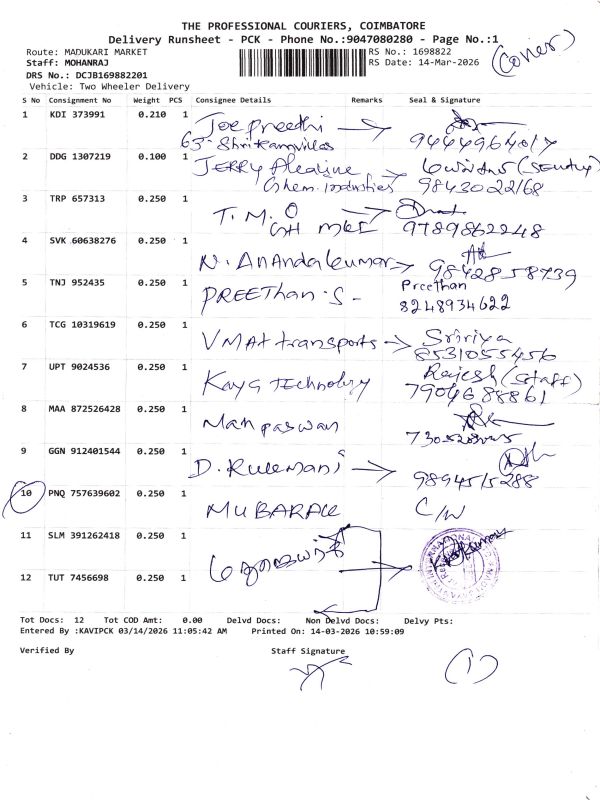 THE PROFESSIONAL COURIERS, COIMBATORE
Delivery Runsheet - PCK - Phone No.:9047080280 - Page No.:1
Route: MADUKARI MARKET
RS No.: 1698822
Staff: MOHANRAJ
RS Date: 14-Mar-2026
DRS No.: DCJB169882201
Vehicle: Two Wheeler Delivery
S No Consignment No Weight PCS Consignee Details Remarks Seal & Signature
1 KDI 373991 0.210 1 Joe Preethi
2 DDG 1307219 0.100 1 JERRY
9843022168
3 TRP 657313 0.250 1 T. M. O
9789862248
4 SVK 60638276 0.250 1 N. Anandakumar 9842858739
5 TNJ 952435 0.250 1 PREEThan. S - Preethan
8248934622
6 TCG 10319619 0.250 1 VMAt transports Sririya
8531055456
7 UPT 9024536 0.250 1 Kayg Technology Rajesh (staff)
7904688861
8 MAA 872526428 0.250 1
9 GGN 912401544 0.250 1 D. Rulemani 9894515288
10 PNQ 757639602 0.250 1 MUBARAK C/N
11 SLM 391262418 0.250 1
12 TUT 7456698 0.250 1
Tot Docs: 12 Tot COD Amt: 0.00 Delvd Docs: Non Delvd Docs: Delvy Pts:
Entered By :KAVIPCK 03/14/2026 11:05:42 AM Printed On: 14-03-2026 10:59:09
Verified By Staff Signature
(1)